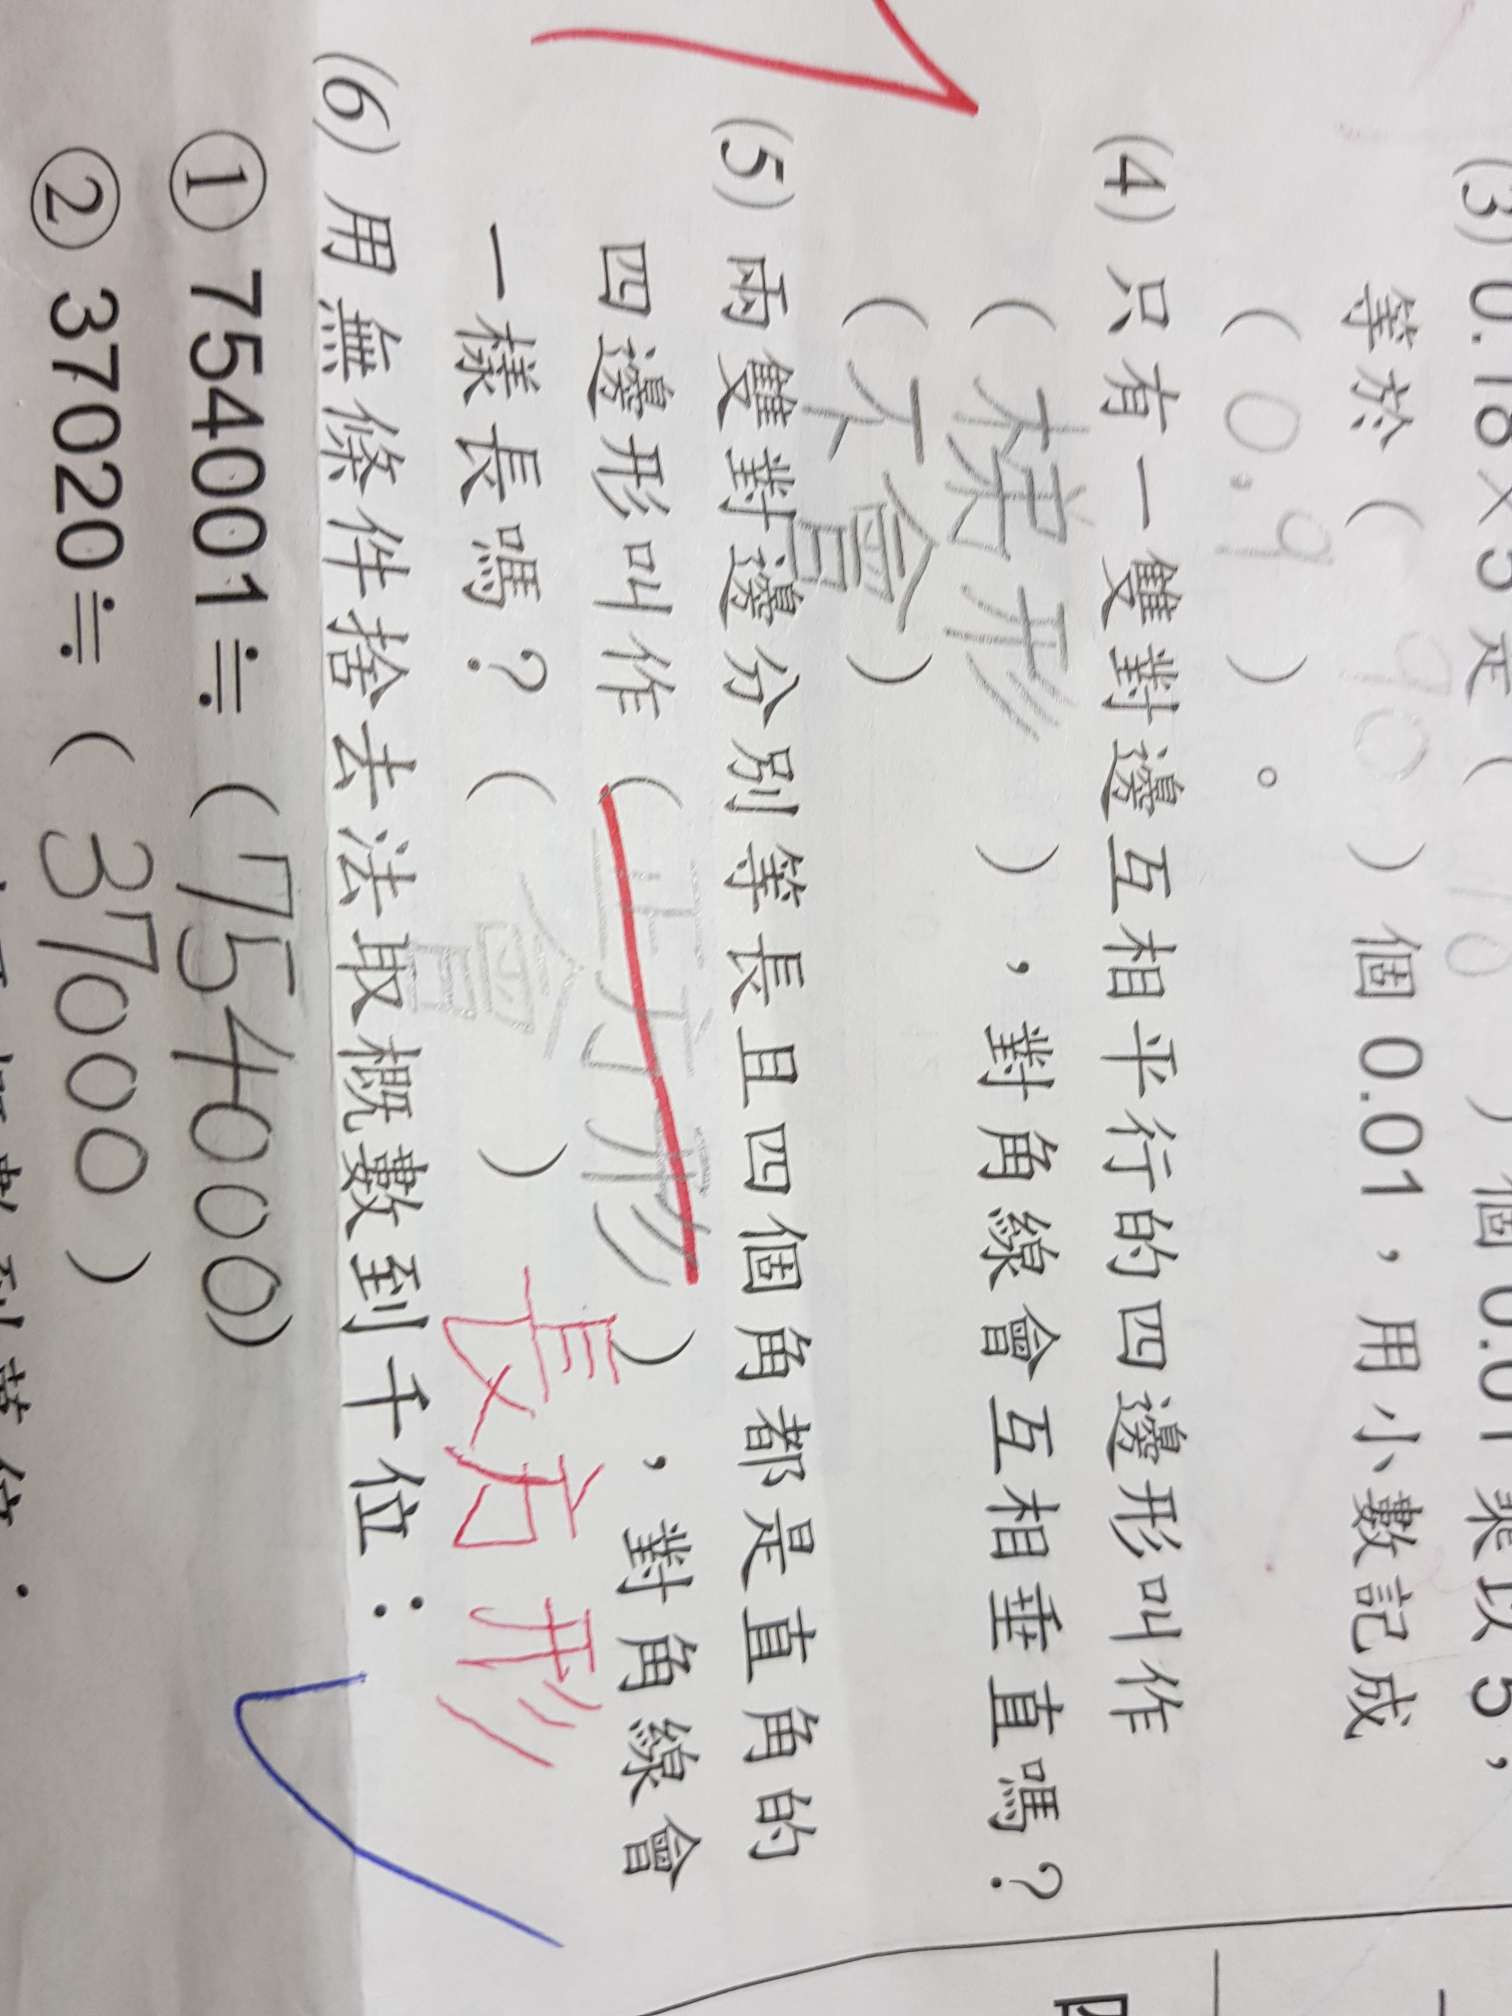 (3) 0.18×5是(　)個0.01乘以5，
等於(90)個0.01，用小數記成
(0.9)。
(4) 只有一雙對邊互相平行的四邊形叫作
(梯形)，對角線會互相垂直嗎？
(不會)
(5) 兩雙對邊分別等長且四個角都是直角的
四邊形叫作(正方形)，對角線會
一樣長嗎？(會) 長方形
(6) 用無條件捨去法取概數到千位：
① 754001≒(754000)
② 37020≒(37000)